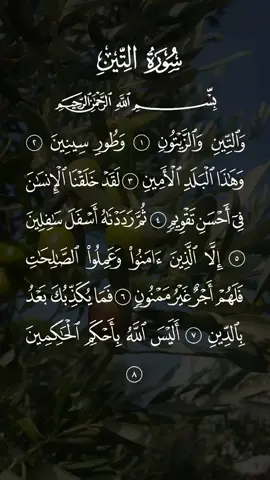 سُورَةُ التِّينِ
بِسْمِ اللَّهِ الرَّحْمَٰنِ الرَّحِيمِ
وَالتِّينِ وَالزَّيْتُونِ ١ وَطُورِ سِينِينَ ٢
وَهَٰذَا الْبَلَدِ الْأَمِينِ ٣ لَقَدْ خَلَقْنَا الْإِنسَٰنَ
فِىٓ أَحْسَنِ تَقْوِيمٍ ٤ ثُمَّ رَدَدْنَٰهُ أَسْفَلَ سَٰفِلِينَ
٥ إِلَّا الَّذِينَ ءَامَنُوا۟ وَعَمِلُوا۟ الصَّٰلِحَٰتِ
فَلَهُمْ أَجْرٌ غَيْرُ مَمْنُونٍ ٦ فَمَا يُكَذِّبُكَ بَعْدُ
بِالدِّينِ ٧ أَلَيْسَ اللَّهُ بِأَحْكَمِ الْحَٰكِمِينَ
٨